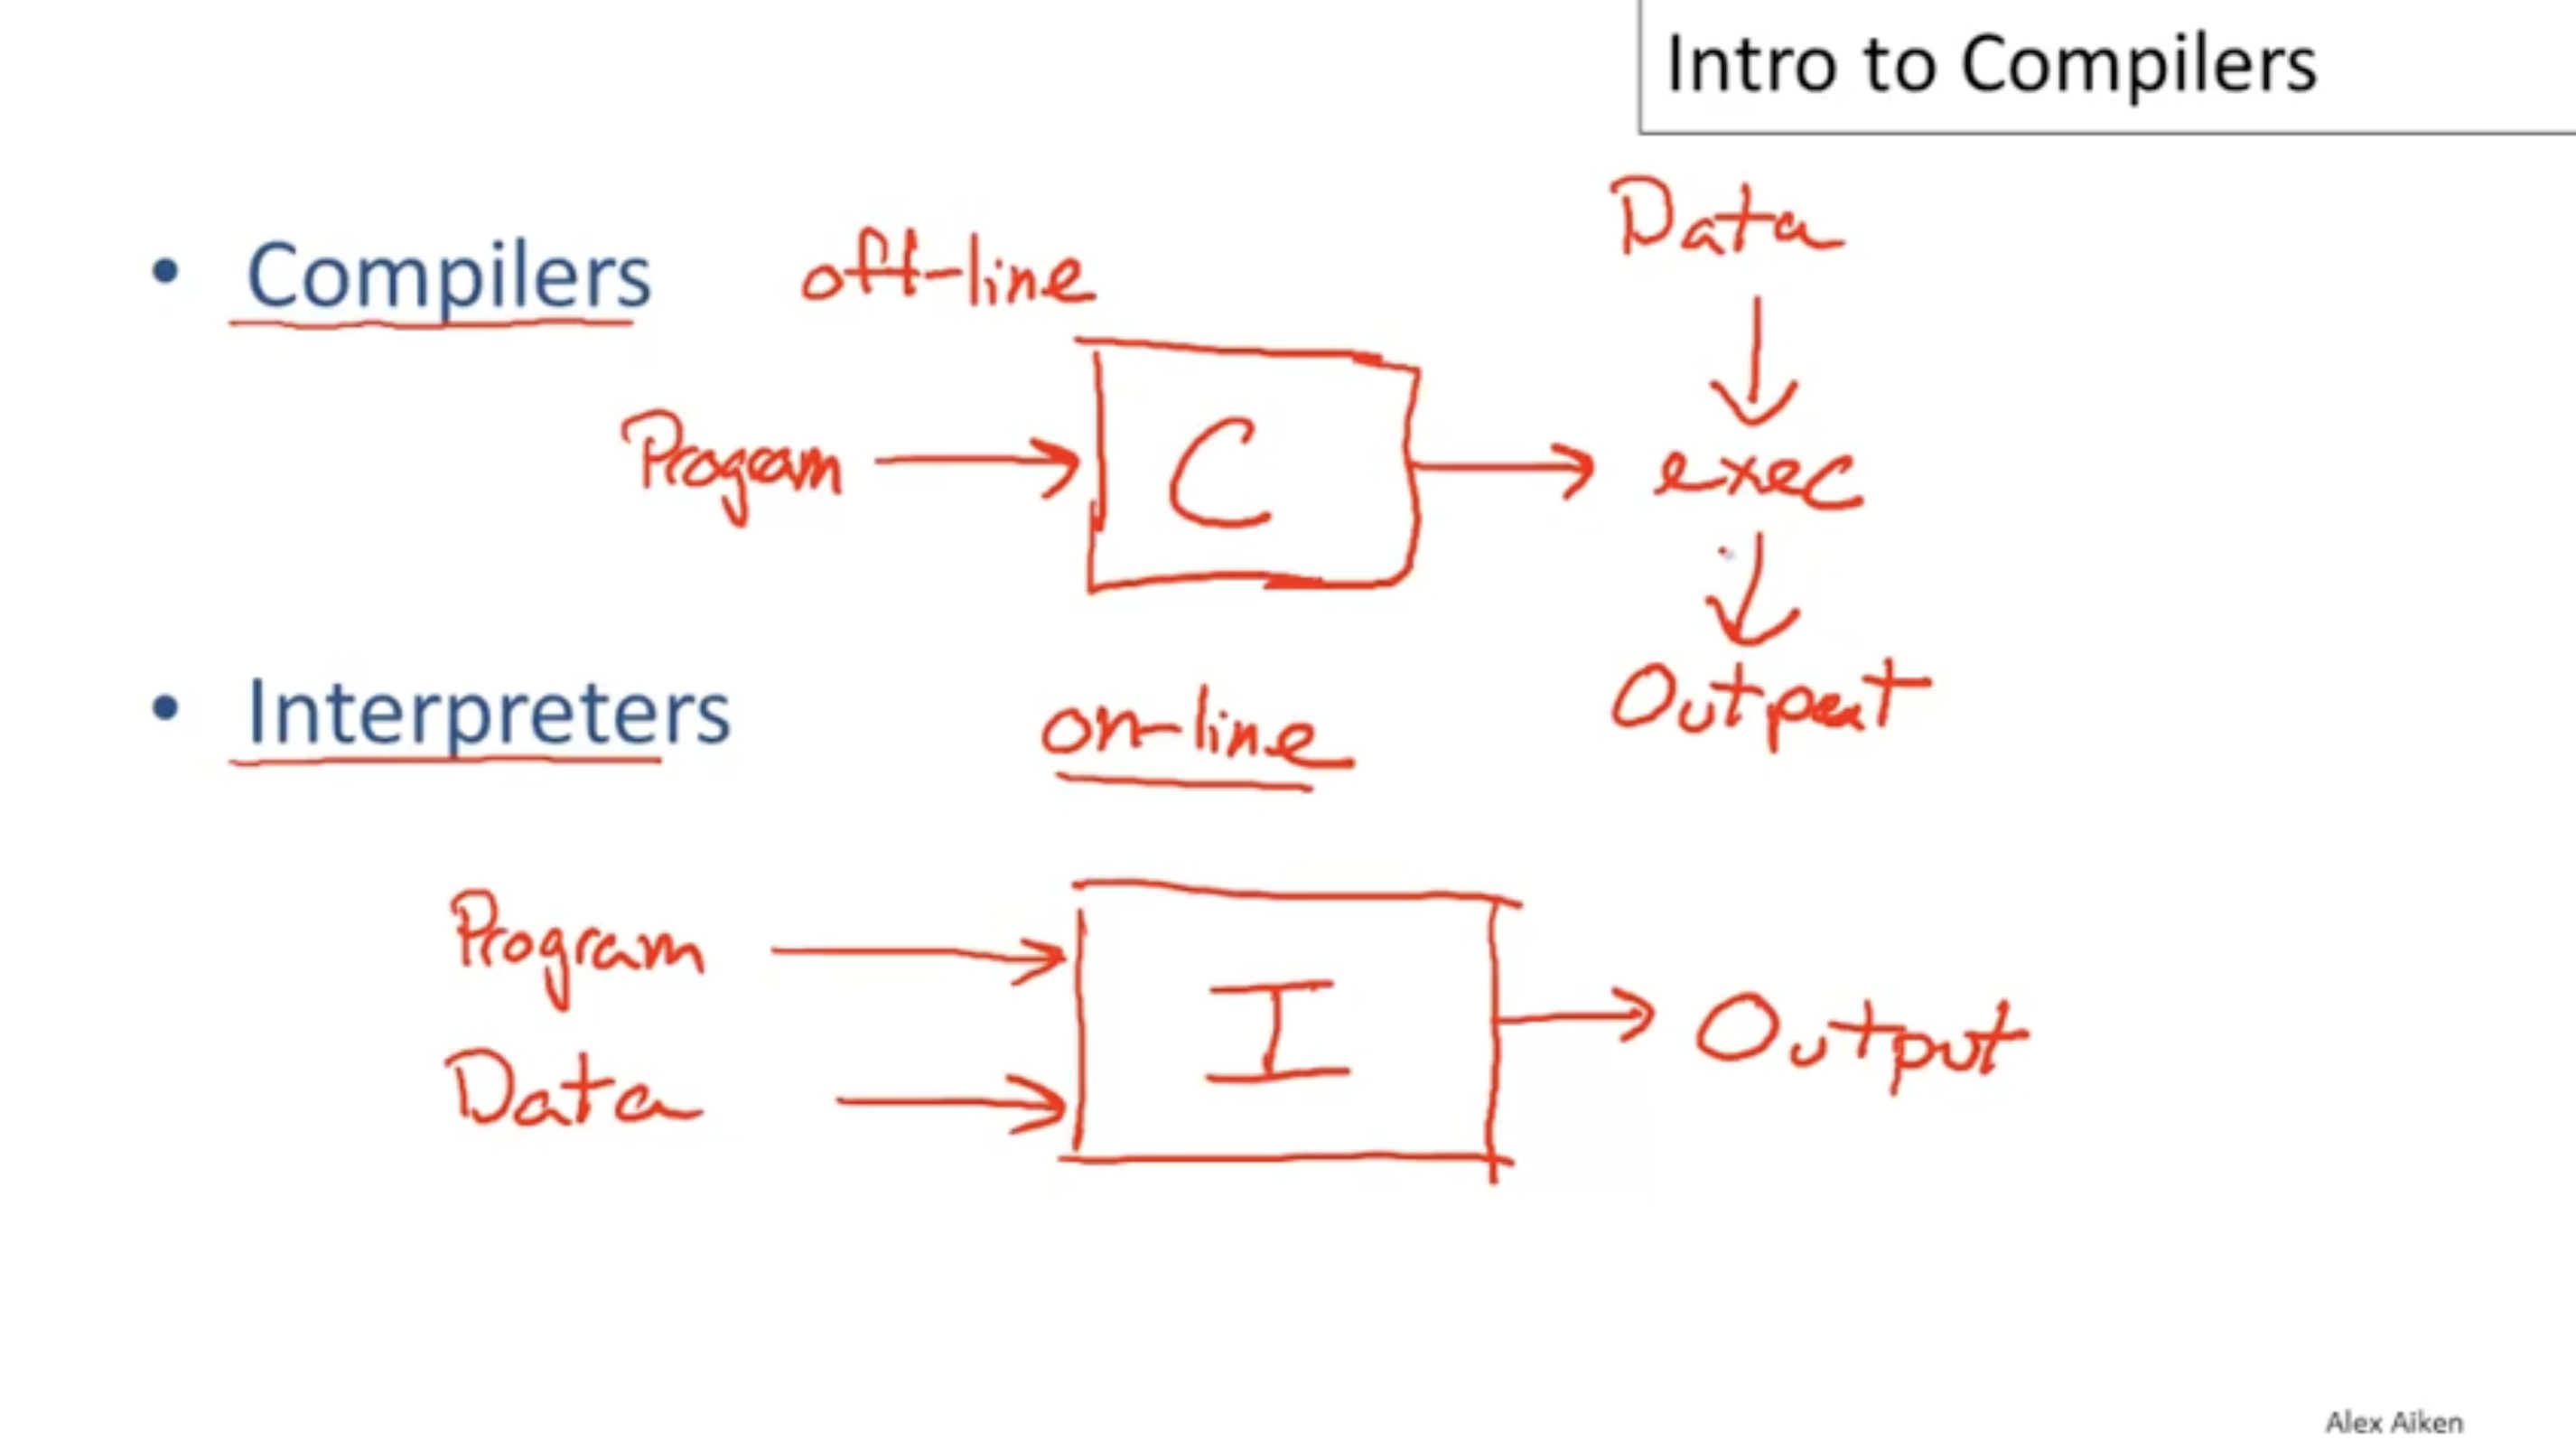 Intro to Compilers
Data
• Compilers off-line
Program → C → exec
Output
• Interpreters on-line
Program
I → Output
Data
Alex Aiken